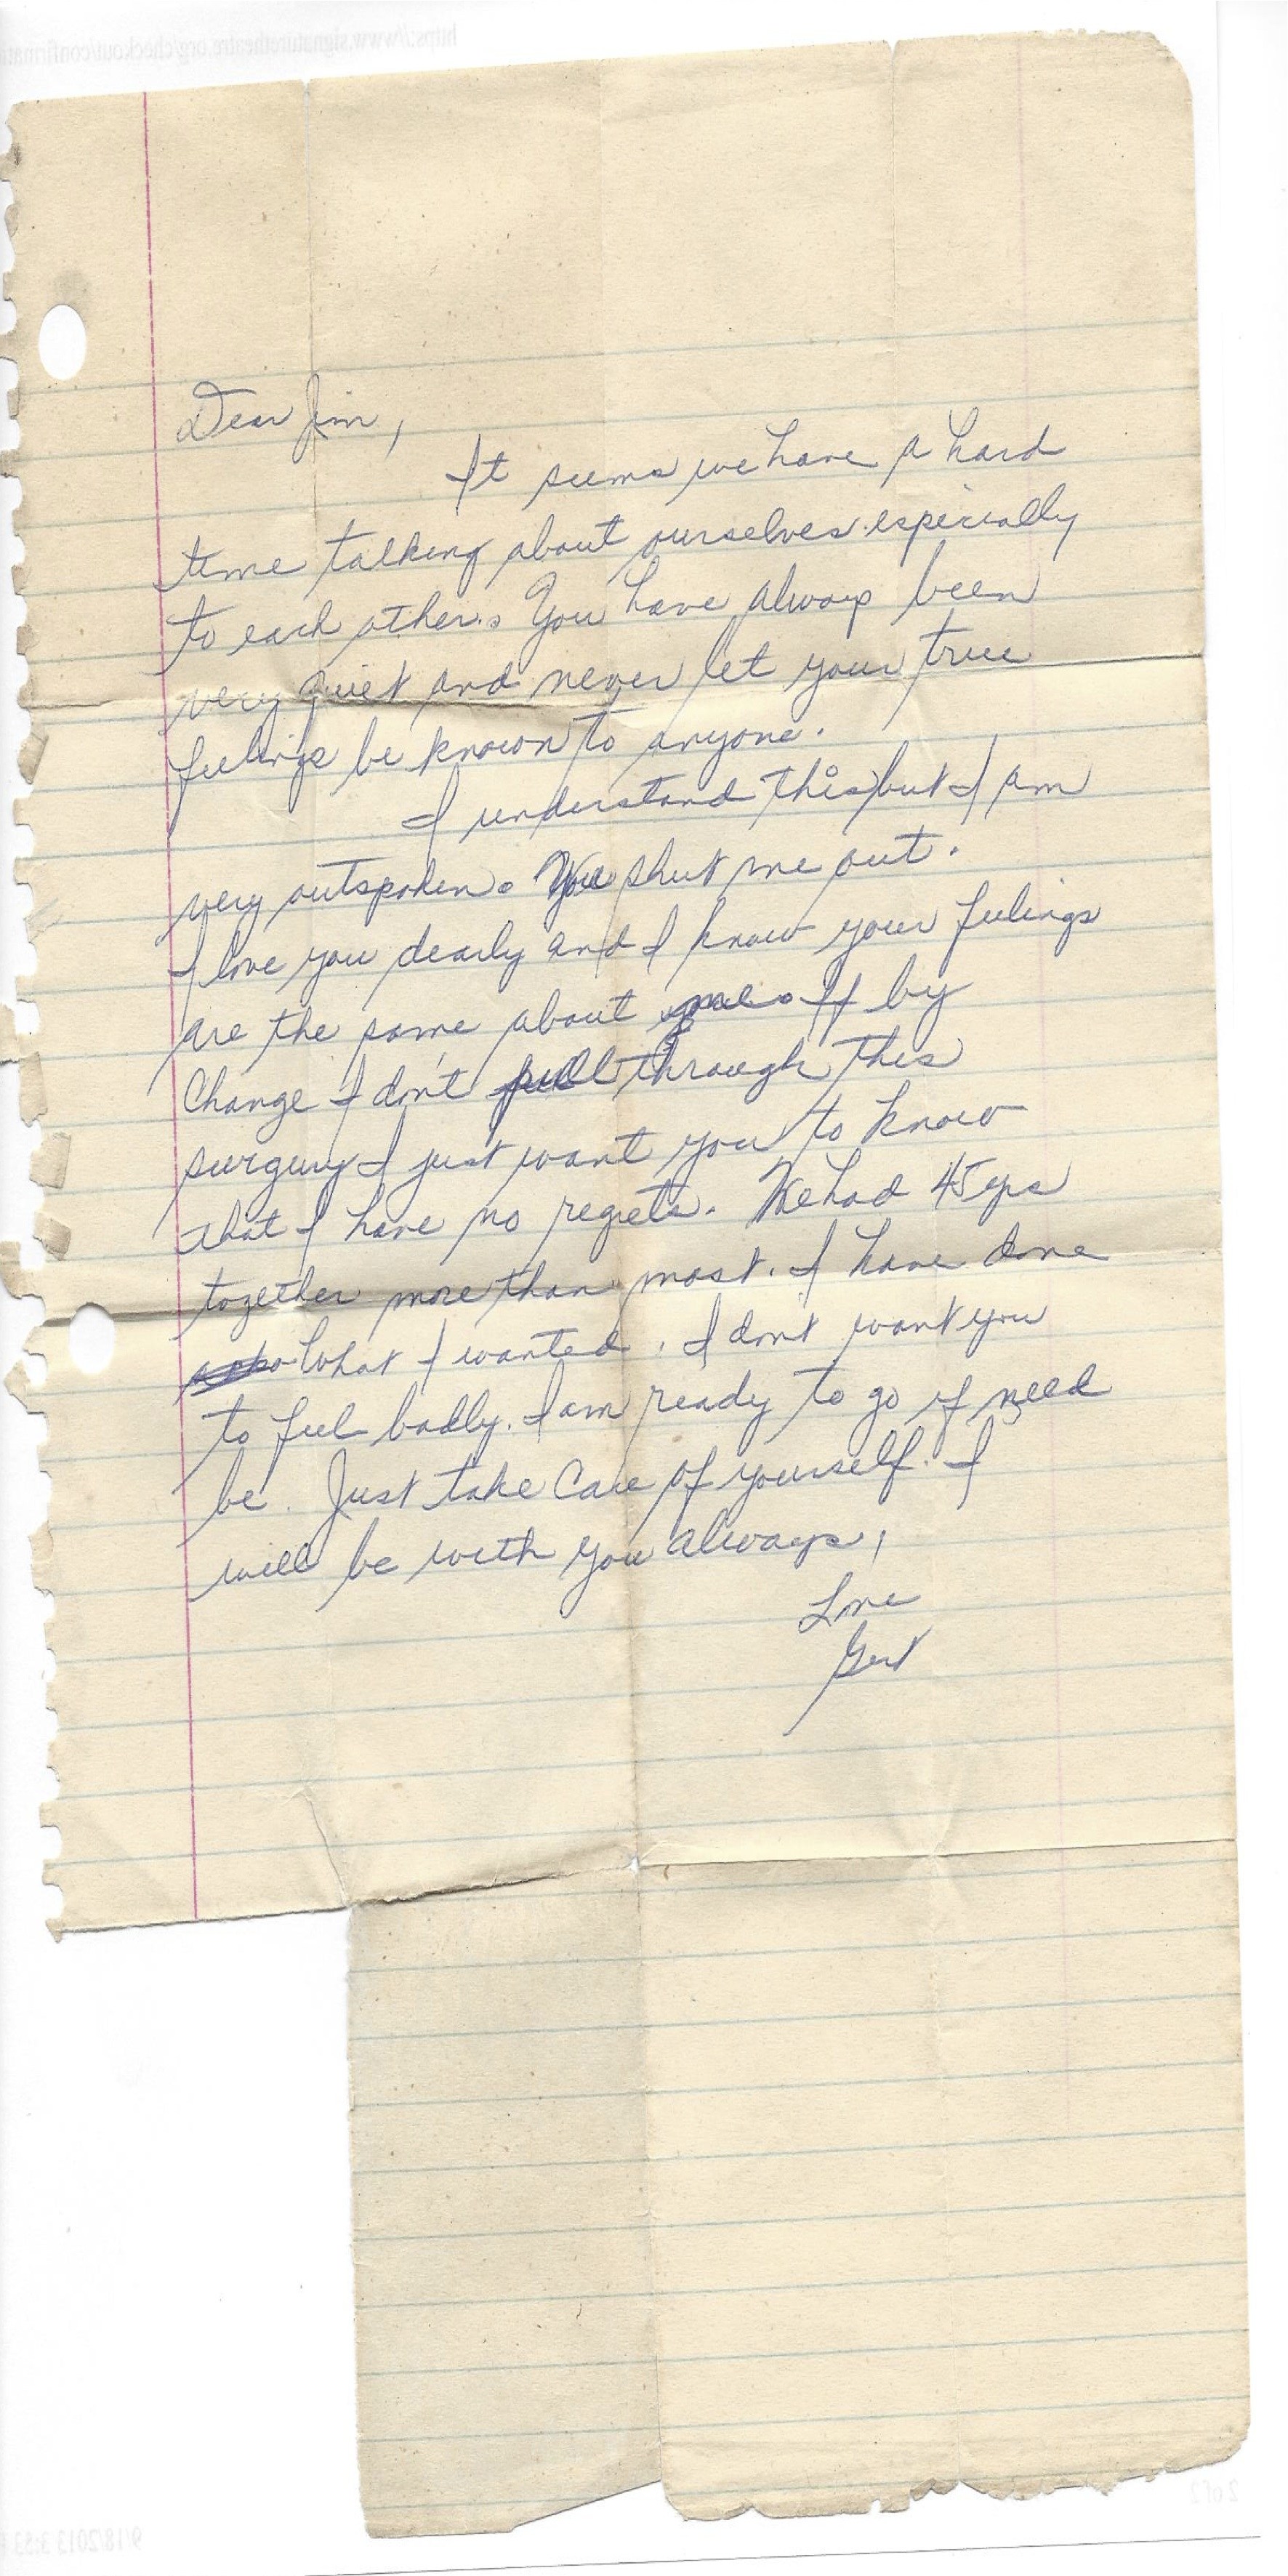 https://www.signaturetheatre.org/checkout/confirmati
Dear Jim,
It seems we have a hard
time talking about ourselves especially
to each other. You have always been
very quiet and never let your true
feelings be known to anyone.
I understand this but I am
very outspoken. You shut me out.
I love you dearly and I know your feelings
are the same about me. If by
Change I don't pull through this
surgury I just want you to know
that I have no regrets. We had 45 yrs
together more than most. I have done
What I wanted. I dont want you
to feel badly. I am ready to go if need
be. Just take Care of yourself. I
will be with you always,
Love
Gert
2 of 2
9/18/2013 3:53